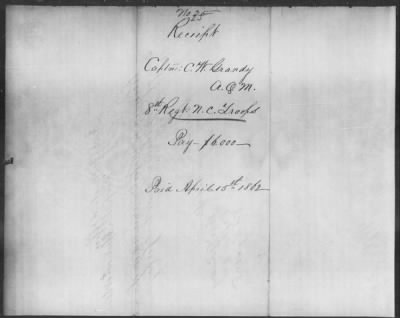 No 25
Receipt
Captn. C. W. Grandy
A. Q M.
8th Regt. N. C. Troops
Pay - $6,000 —
Paid April 10th 1862